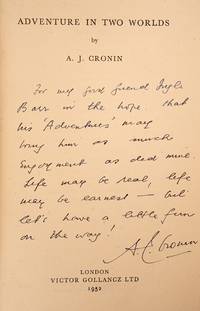 ADVENTURE IN TWO WORLDS
by
A. J. CRONIN
For my good friend Ingle
Barr in the hope that
his 'Adventures' may
bring him as much
Enjoyment as did mine.
Life may be real, life
may be earnest — but
let's have a little fun
on the way!
A. J. Cronin
LONDON
VICTOR GOLLANCZ LTD
1952